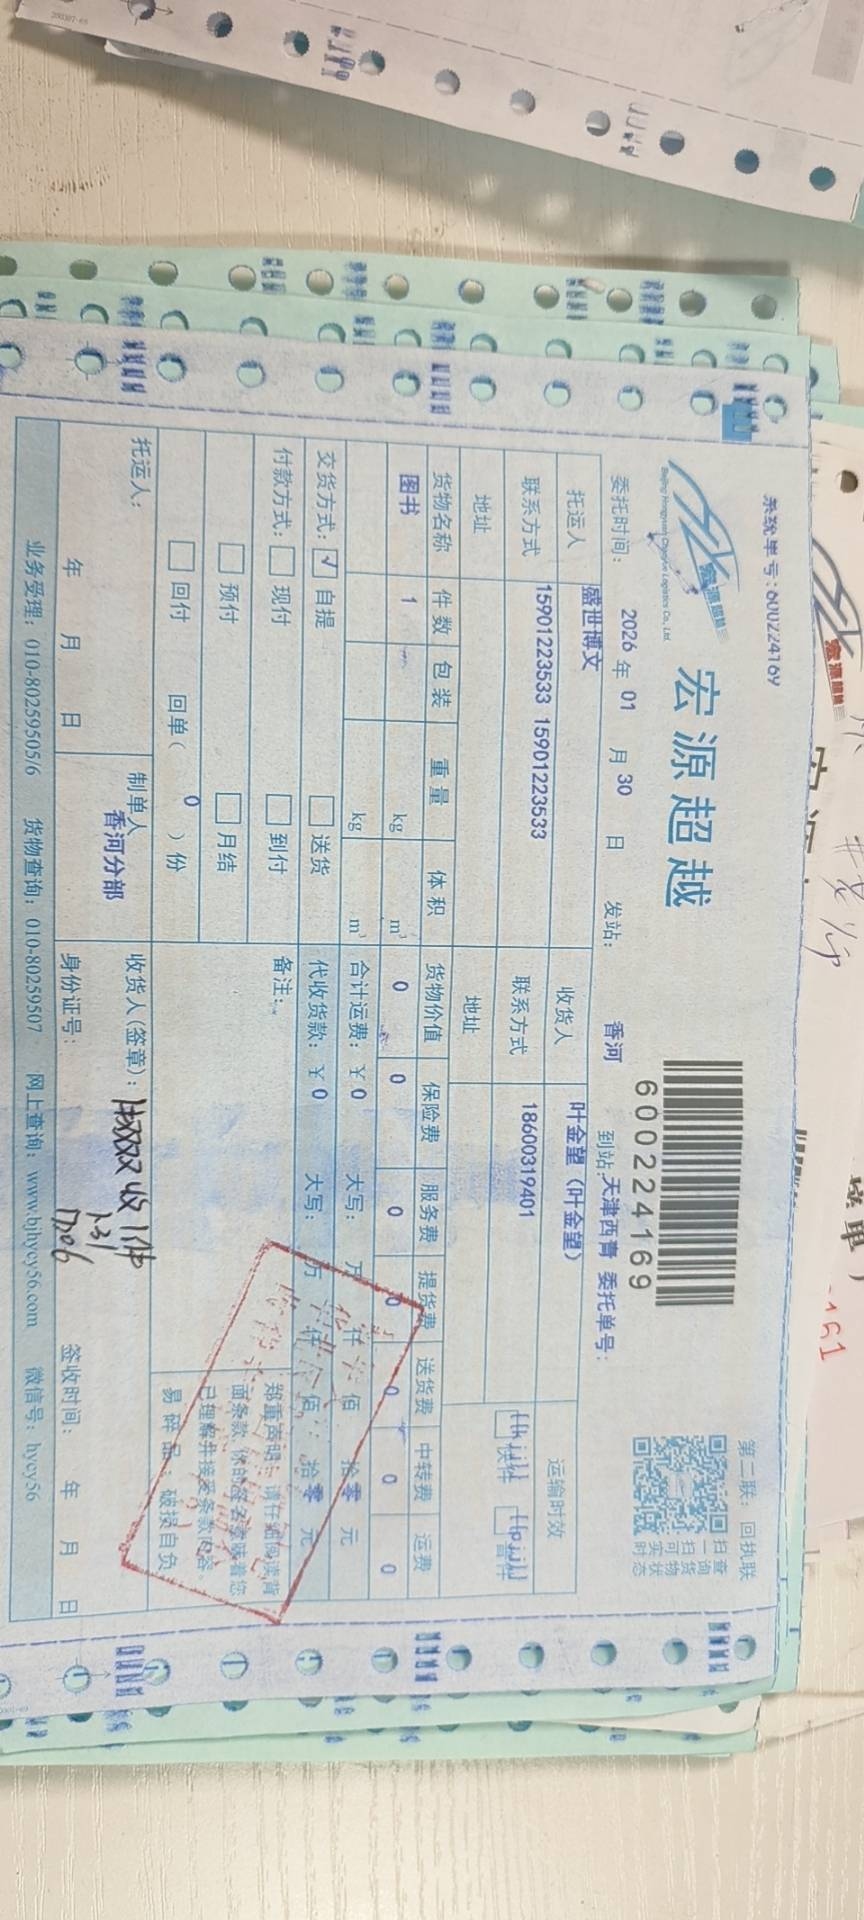 系统单号:600224169
第二联：回执联
宏源超越
Beijing Hongyuan Chaoyue Logistics Co., Ltd.
宏源超越
600224169
扫一扫可实时
查询货物状态
委托时间： 2026 年 01 月 30 日 发站： 香河 到站: 天津西青 委托单号：
托运人 盛世博文 收货人 叶金望（叶金望） 运输时效
联系方式 15901223533 15901223533 联系方式 18600319401 快件 普件
地址 地址
货物名称 件数 包装 重量 体积 货物价值 保险费 服务费 提货费 送货费 中转费 运费
图书 1 kg m³ 0 0 0 0 0 0 0
kg m³ 合计运费：￥0 大写： 万 仟 佰 拾 零 元
交货方式： ✓ 自提 送货 代收货款：￥0 大写： 万 仟 佰 拾 零 元
付款方式： 现付 到付 备注：
预付 月结
回付 回单（ 0 ）份
郑重声明：请仔细阅读背
面条款，您的签名意味着您
已理解并接受条款内容。
易碎品：破损自负
托运人： 制单人 香河分部 收货人(签章)： 收1件
1.31
年 月 日 身份证号： 签收时间： 年 月 日
业务受理：010-80259505/6 货物查询：010-80259507 网上查询：www.bjhycy56.com 微信号：hycy56
宏源超越
161